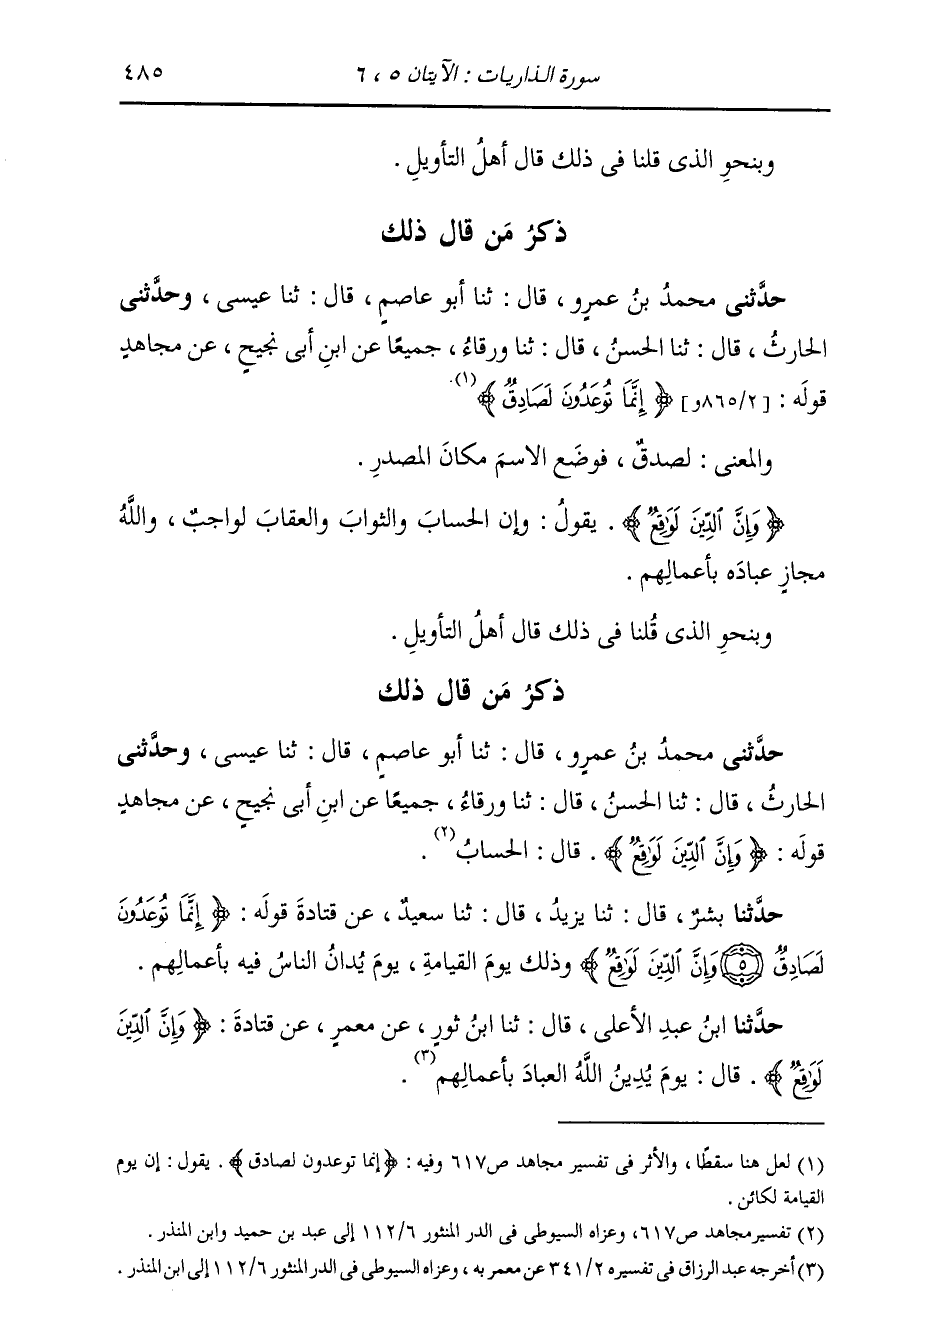 سورة الذاريات : الآيتان ٥ ، ٦ ٤٨٥
وبنحوِ الذى قلنا فى ذلك قال أهلُ التأويلِ .
ذكرُ مَن قال ذلك
حدَّثنى محمدُ بنُ عمرٍو ، قال : ثنا أبو عاصمٍ ، قال : ثنا عيسى ، وحدَّثنى
الحارثُ ، قال : ثنا الحسنُ ، قال : ثنا ورقاءُ ، جميعًا عن ابنِ أبى نجيحٍ ، عن مجاهدٍ
قولَه : [٨٦٥/٢و] ﴿ إِنَّمَا تُوعَدُونَ لَصَادِقٌ ﴾(١).
والمعنى : لصدقٌ ، فوضَع الاسمَ مكانَ المصدرِ .
﴿ وَإِنَّ ٱلدِّينَ لَوَٰقِعٌ ﴾ . يقولُ : وإن الحسابَ والثوابَ والعقابَ لواجبٌ ، واللَّهُ
مجازٍ عبادَه بأعمالِهم .
وبنحوِ الذى قُلنا فى ذلك قال أهلُ التأويلِ .
ذكرُ مَن قال ذلك
حدَّثنى محمدُ بنُ عمرٍو ، قال : ثنا أبو عاصمٍ ، قال : ثنا عيسى ، وحدَّثنى
الحارثُ ، قال : ثنا الحسنُ ، قال : ثنا ورقاءُ ، جميعًا عن ابنِ أبى نجيحٍ ، عن مجاهدٍ
قولَه : ﴿ وَإِنَّ ٱلدِّينَ لَوَٰقِعٌ ﴾ . قال : الحسابُ(٢) .
حدَّثنا بشرٌ ، قال : ثنا يزيدُ ، قال : ثنا سعيدٌ ، عن قتادةَ قولَه : ﴿ إِنَّمَا تُوعَدُونَ
لَصَادِقٌ ۝٥ وَإِنَّ ٱلدِّينَ لَوَٰقِعٌ ﴾ وذلك يومَ القيامةِ ، يومَ يُدانُ الناسُ فيه بأعمالِهم .
حدَّثنا ابنُ عبدِ الأعلى ، قال : ثنا ابنُ ثورٍ ، عن معمرٍ ، عن قتادةَ : ﴿ وَإِنَّ ٱلدِّينَ
لَوَٰقِعٌ ﴾ . قال : يومَ يُدِينُ اللَّهُ العبادَ بأعمالِهم(٣) .
(١) لعل هنا سقطًا ، والأثر فى تفسير مجاهد ص٦١٧ وفيه : ﴿إنما توعدون لصادق ﴾ . يقول : إن يوم
القيامة لكائن .
(٢) تفسير مجاهد ص٦١٧، وعزاه السيوطى فى الدر المنثور ١١٢/٦ إلى عبد بن حميد وابن المنذر .
(٣) أخرجه عبد الرزاق فى تفسيره ٣٤١/٢ عن معمر به ، وعزاه السيوطى فى الدر المنثور ١١٢/٦ إلى ابن المنذر .